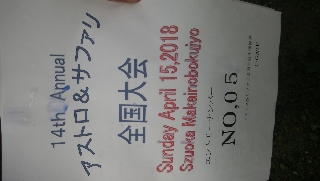 14th, Annual
アストロ&サファリ
全国大会
Sunday April 15,2018
Szuoka Makainobokujyo
エントリーナンバー
NO,05